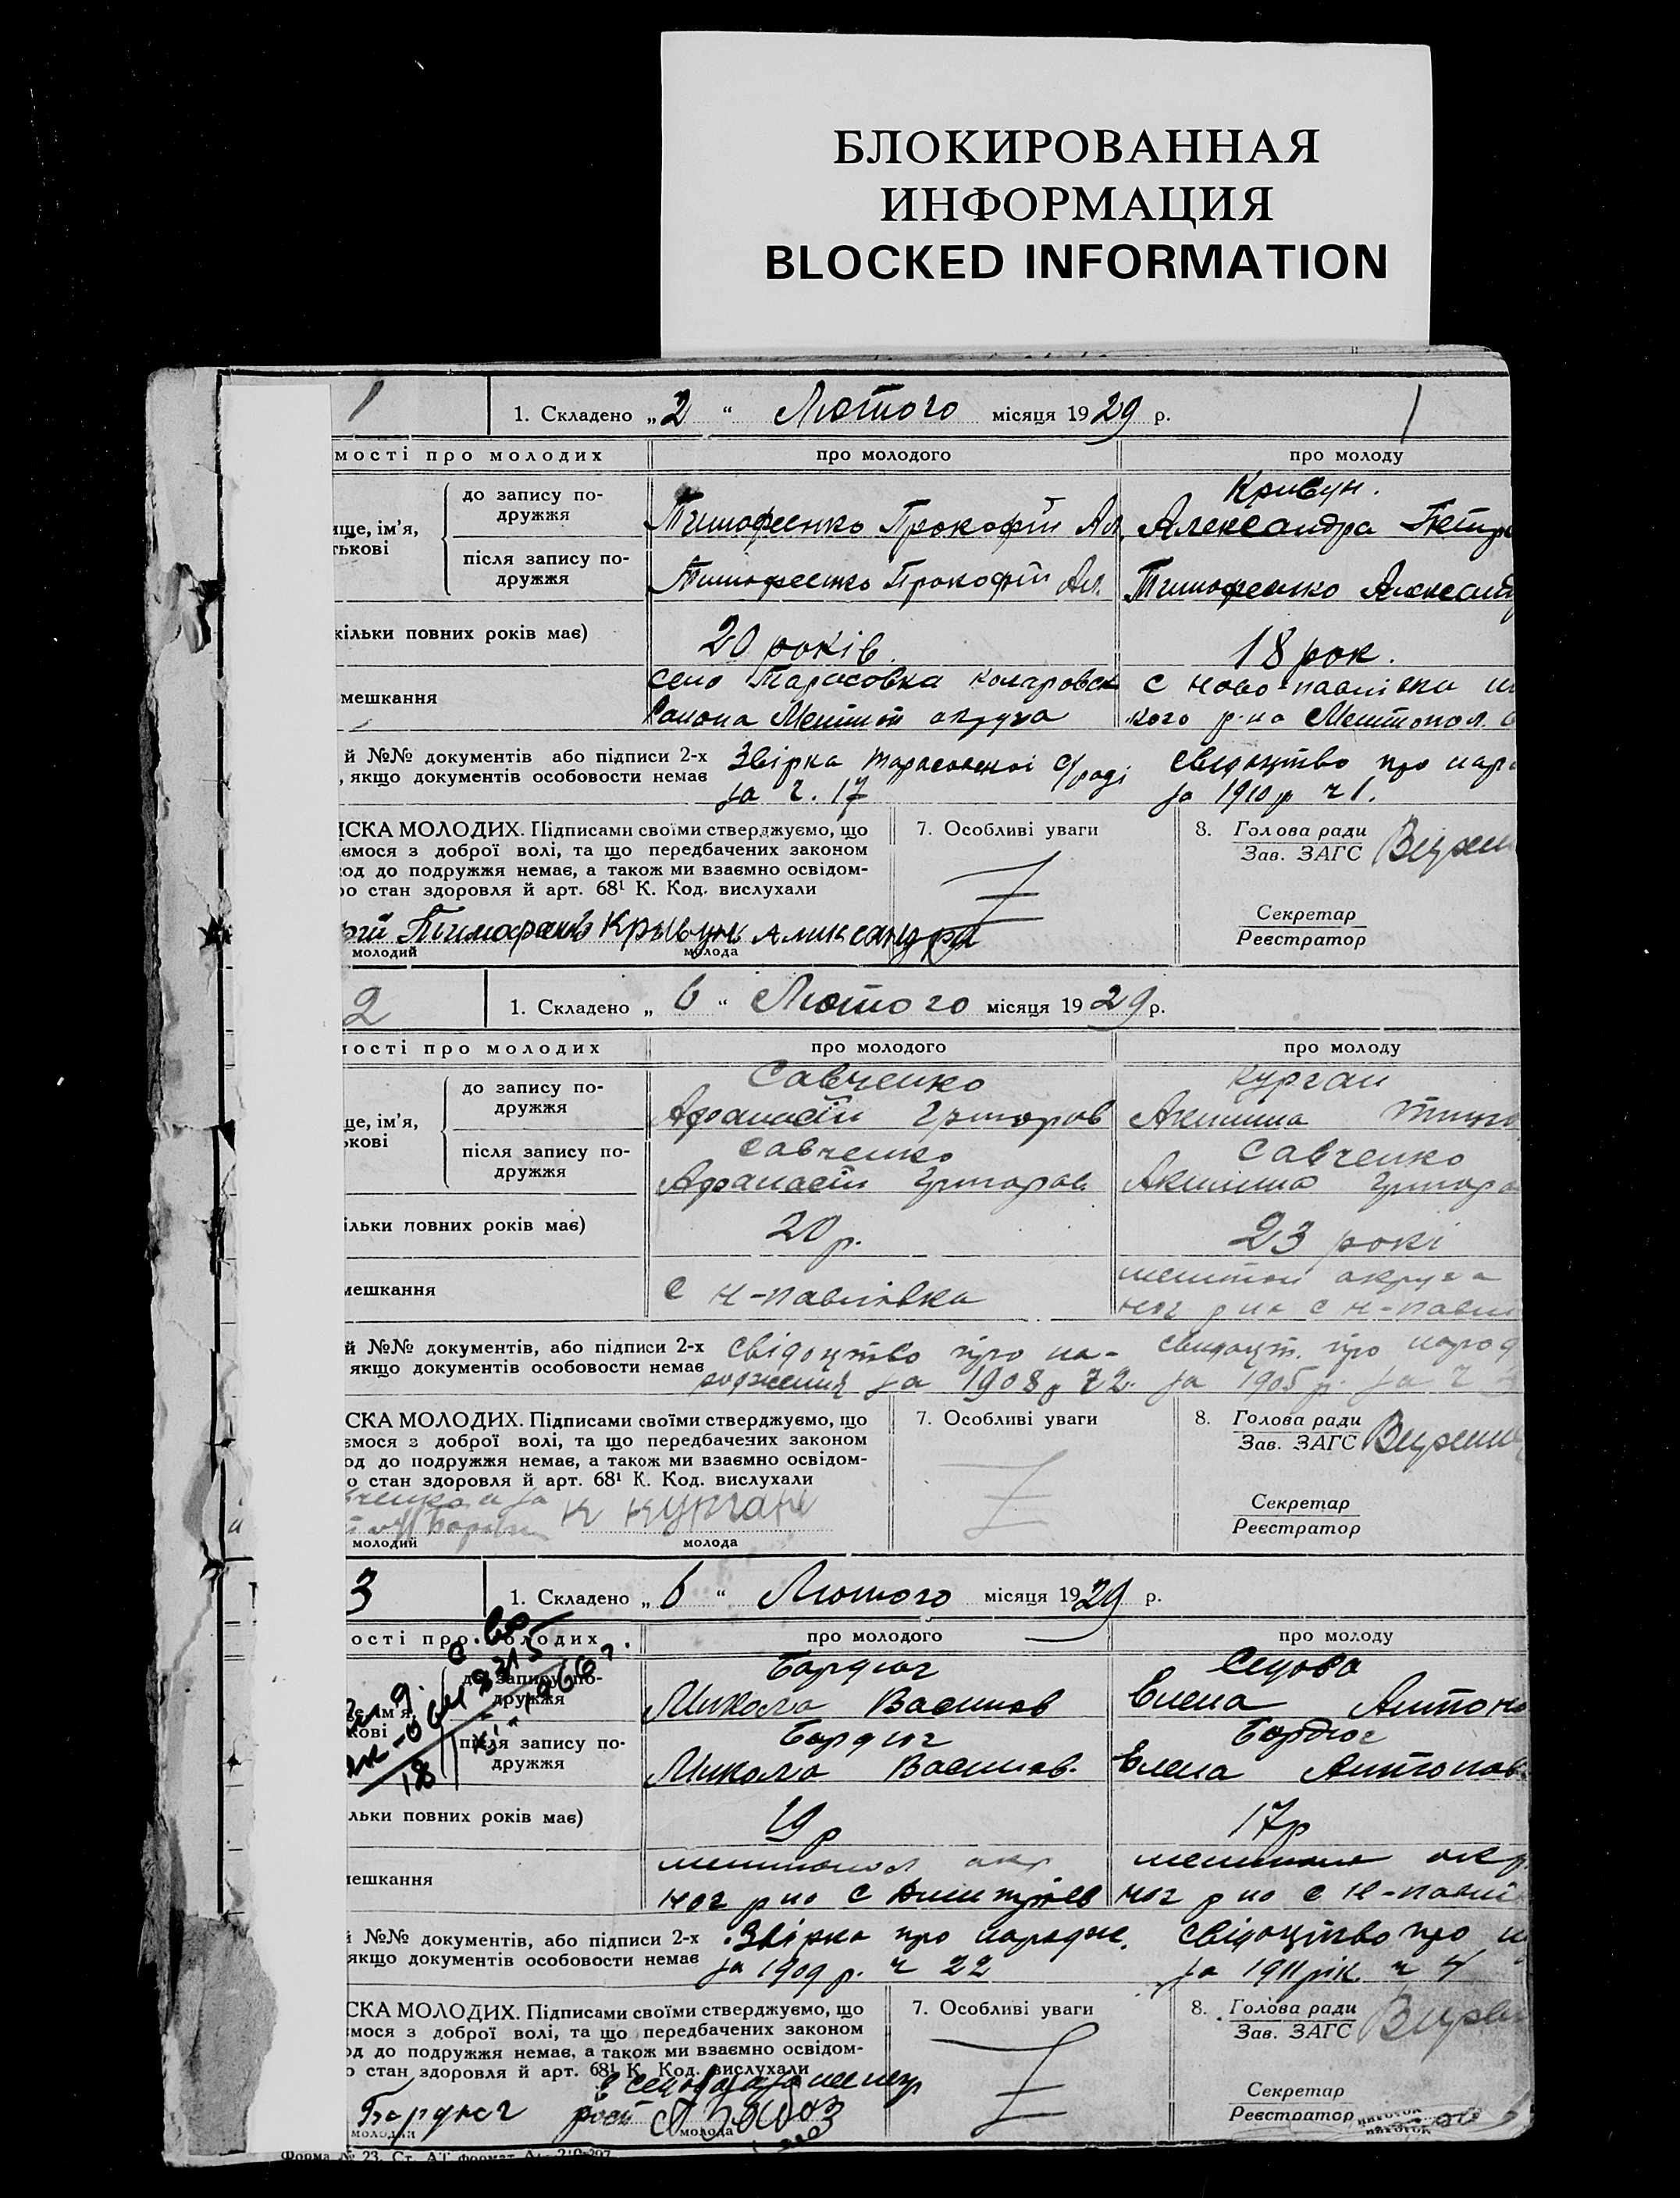 БЛОКИРОВАННАЯ
ИНФОРМАЦИЯ
BLOCKED INFORMATION
1 1. Складено „2“ Лютого місяця 1929 р. 1
мості про молодих про молодого про молоду
до запису по-
дружжя
Кривун.
ище, ім’я, Тимофеенко Прокофій Ал. Александра Петр
тькові
після запису по-
дружжя
Тимофеенко Прокофій Ал. Тимофеенко Александ
кільки повних років має) 20 років. 18 рок.
мешкання село Тарасовка коларовск с Ново-павлівки
района Меліт ой округа кого р-на Мелітопол. о
й №№ документів або підписи 2-х Звірка Тарасовскої с/раді свідоцтво про наро
, якщо документів особовости немає за ч. 17 за 1910 р ч 1.
ІСКА МОЛОДИХ. Підписами своїми стверджуємо, що
ємося з доброї волі, та що передбачених законом
од до подружжя немає, а також ми взаємно освідом-
ро стан здоровля й арт. 68¹ К. Код. вислухали
7. Особливі уваги
8. Голова ради
Зав. ЗАГС
Секретар
Реєстратор
Кривун Александра
молодий молода
2 1. Складено „6“ Лютого місяця 1929 р.
мості про молодих про молодого про молоду
до запису по-
дружжя
Савченко Курган
ще, ім’я, Афанасій Григоров Акилина
ькові
після запису по-
дружжя
Савченко Савченко
Афанасій Григоров Акилина Григоро
ільки повних років має) 20 р. 23 рокі
мешкання с Н-павлівка меліт ой округа
ног р на с Н-павлі
й №№ документів, або підписи 2-х свідоцтво про на- свидоцт. про народ
якщо документів особовости немає родження за 1908 р ч 2. за 1905 р. за ч
СКА МОЛОДИХ. Підписами своїми стверджуємо, що
ємося з доброї волі, та що передбачених законом
од до подружжя немає, а також ми взаємно освідом-
о стан здоровля й арт. 68¹ К. Код. вислухали
7. Особливі уваги
8. Голова ради
Зав. ЗАГС
Секретар
Реєстратор
молодий молода
3 1. Складено „6“ Лютого місяця 1929 р.
ості про молодих про молодого про молоду
до запису по-
дружжя
Бардюг Седова
ім’я, Микола Васильов Елена Антоно
кові
після запису по-
дружжя
Бардюг Бардюг
Микола Васильов. Елена Антонов
льки повних років має) 19 р 17 р
мешкання мелітопол окр мелітопол окр.
ног р на с Дмитрієв ног р на с Н-павлі
й №№ документів, або підписи 2-х Звірка про народже. свідоцтво про н
якщо документів особовости немає за 1909 р. ч 22 за 1911 рік ч 4
СКА МОЛОДИХ. Підписами своїми стверджуємо, що
ємося з доброї волі, та що передбачених законом
од до подружжя немає, а також ми взаємно освідом-
о стан здоровля й арт. 68¹ К. Код. вислухали
7. Особливі уваги
8. Голова ради
Зав. ЗАГС
Секретар
Реєстратор
Бардюг
молодий молода
Форма № 23. Ст. АТ формат А4 - 210×297